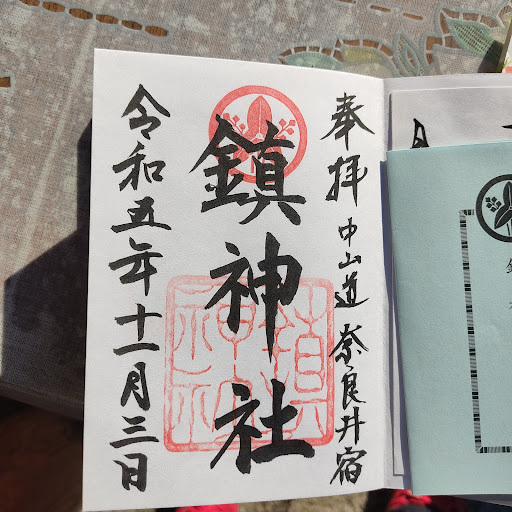 奉拝 中山道 奈良井宿
鎮神社
令和五年十一月三日